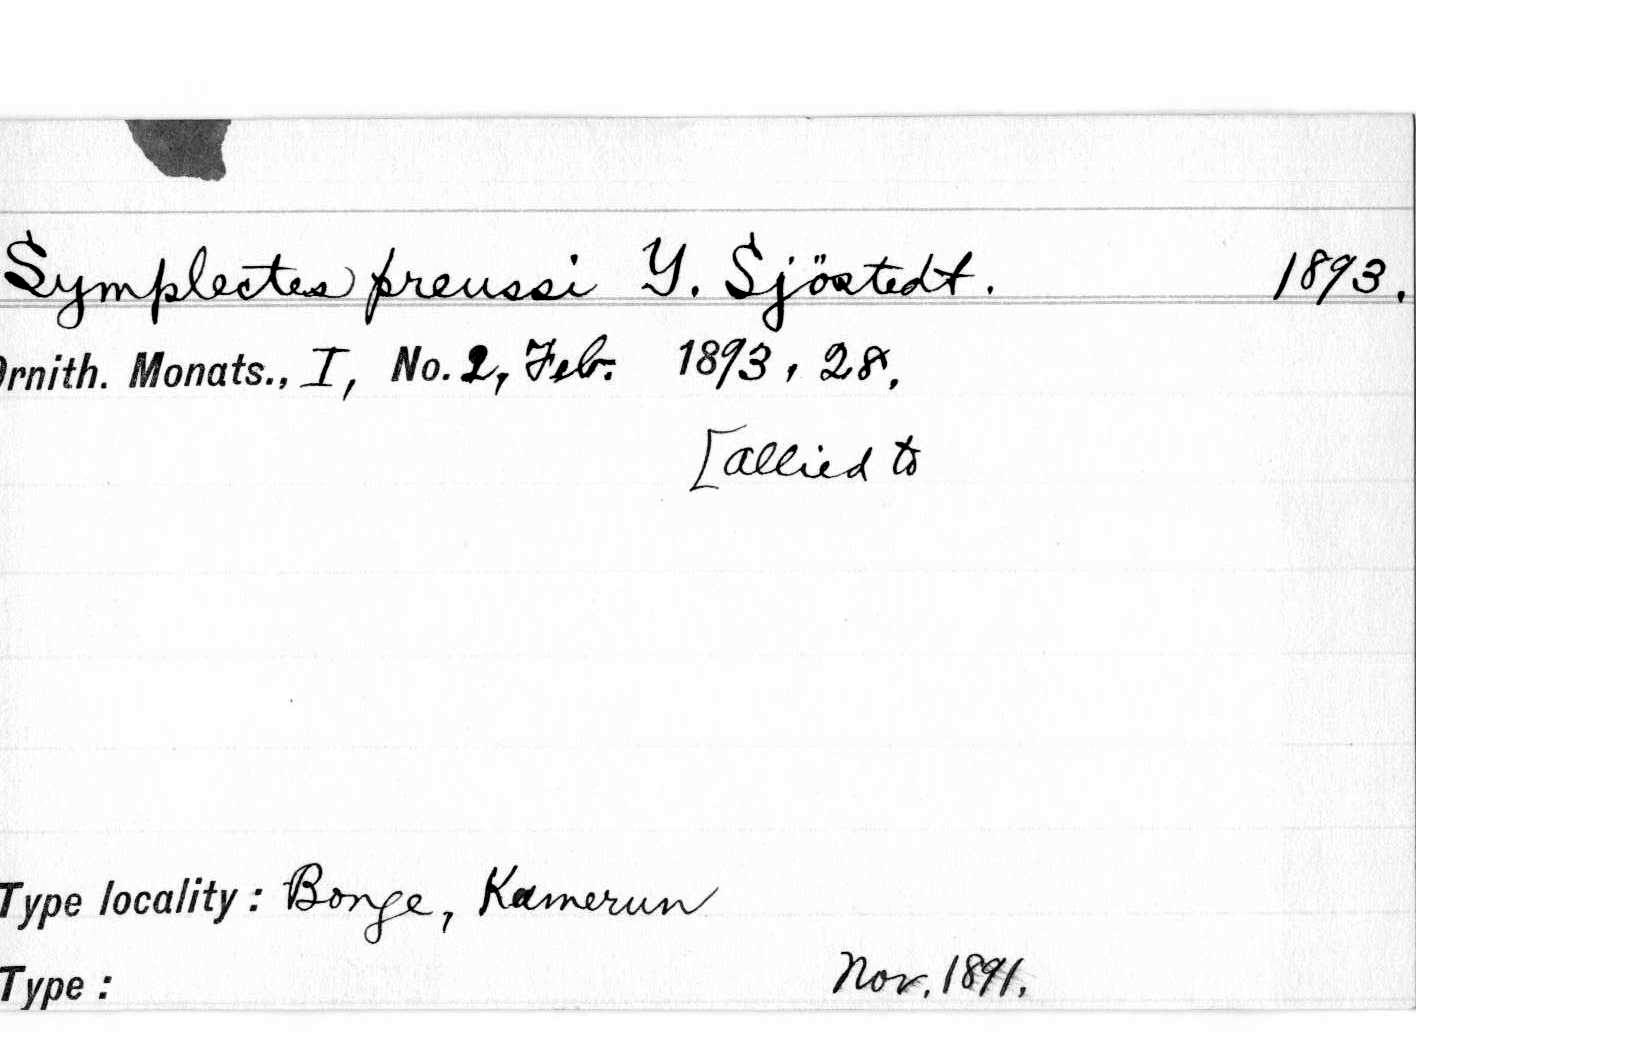 Symplectes preussi Y. Sjöstedt. 1893.
Ornith. Monats., I, No. 2, Feb. 1893, 28.
[allied to
Type locality: Bonge, Kamerun
Type: Nov. 1891.